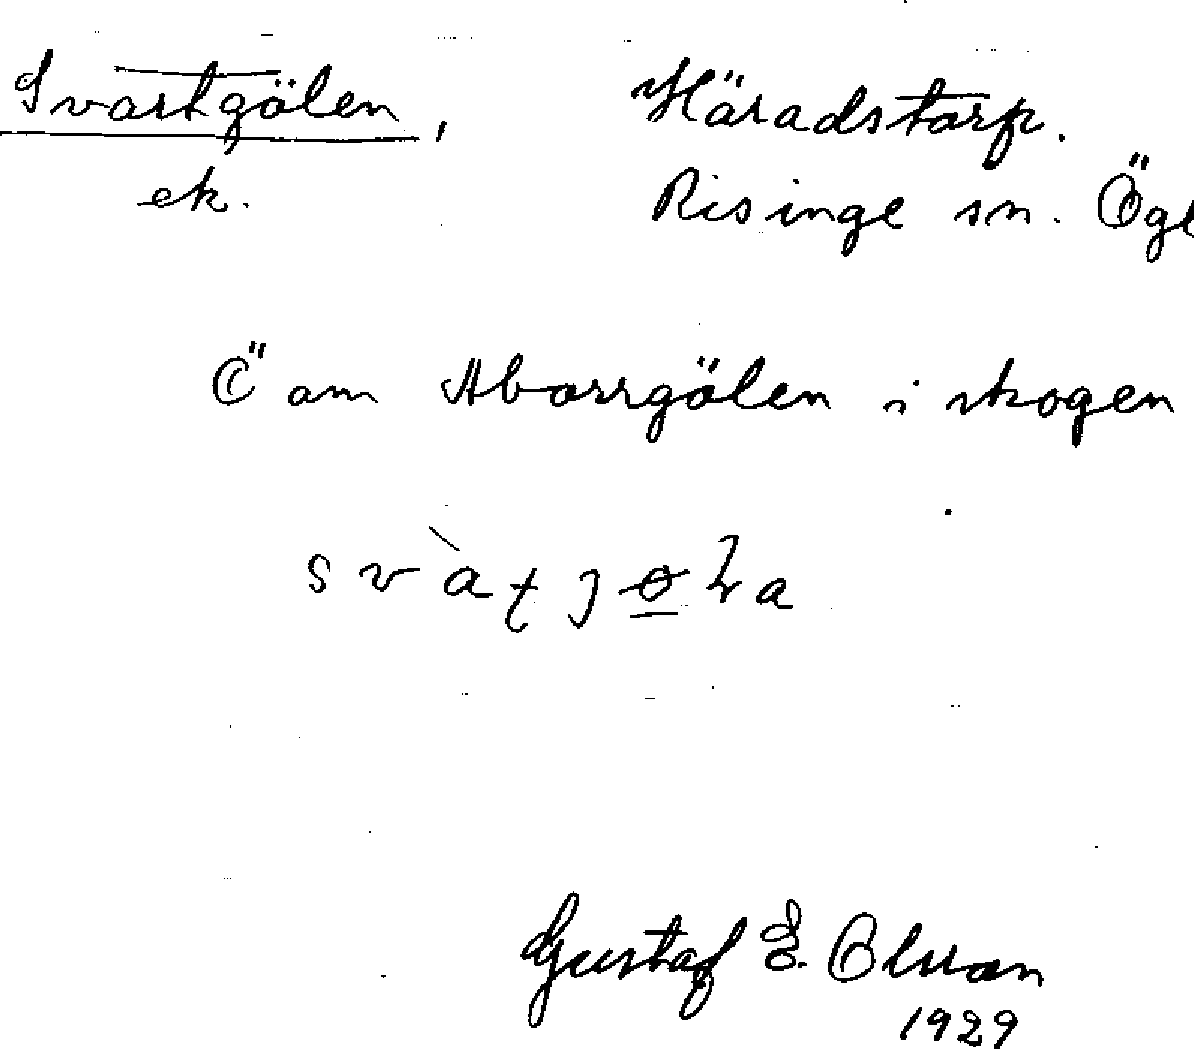 Svartgölen, Häradstorp.
ek. Risinge sn. Ögl
Ö om Aborrgölen i skogen
Gustaf E. Olsson
1929